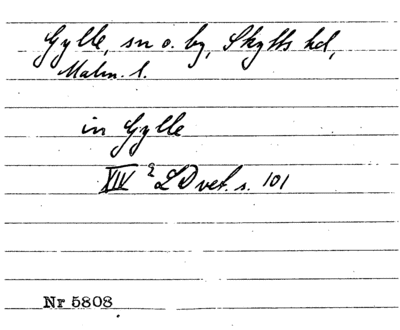 Gylle, sn o. by, Skytts hd,
Malm. l.
in Gylle
XIV 2 LD vet. s. 101
Nr 5808